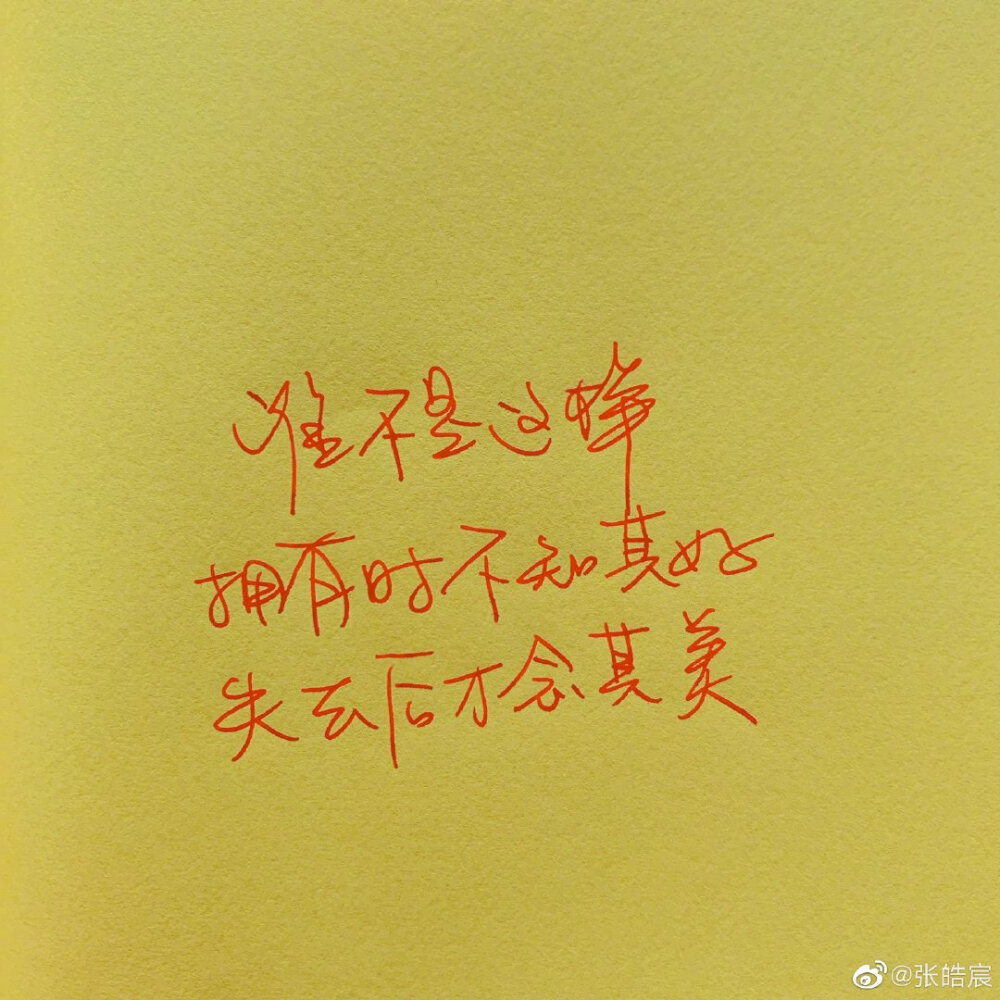 谁不是这样
拥有时不知其好
失去后才念其美
@张皓宸